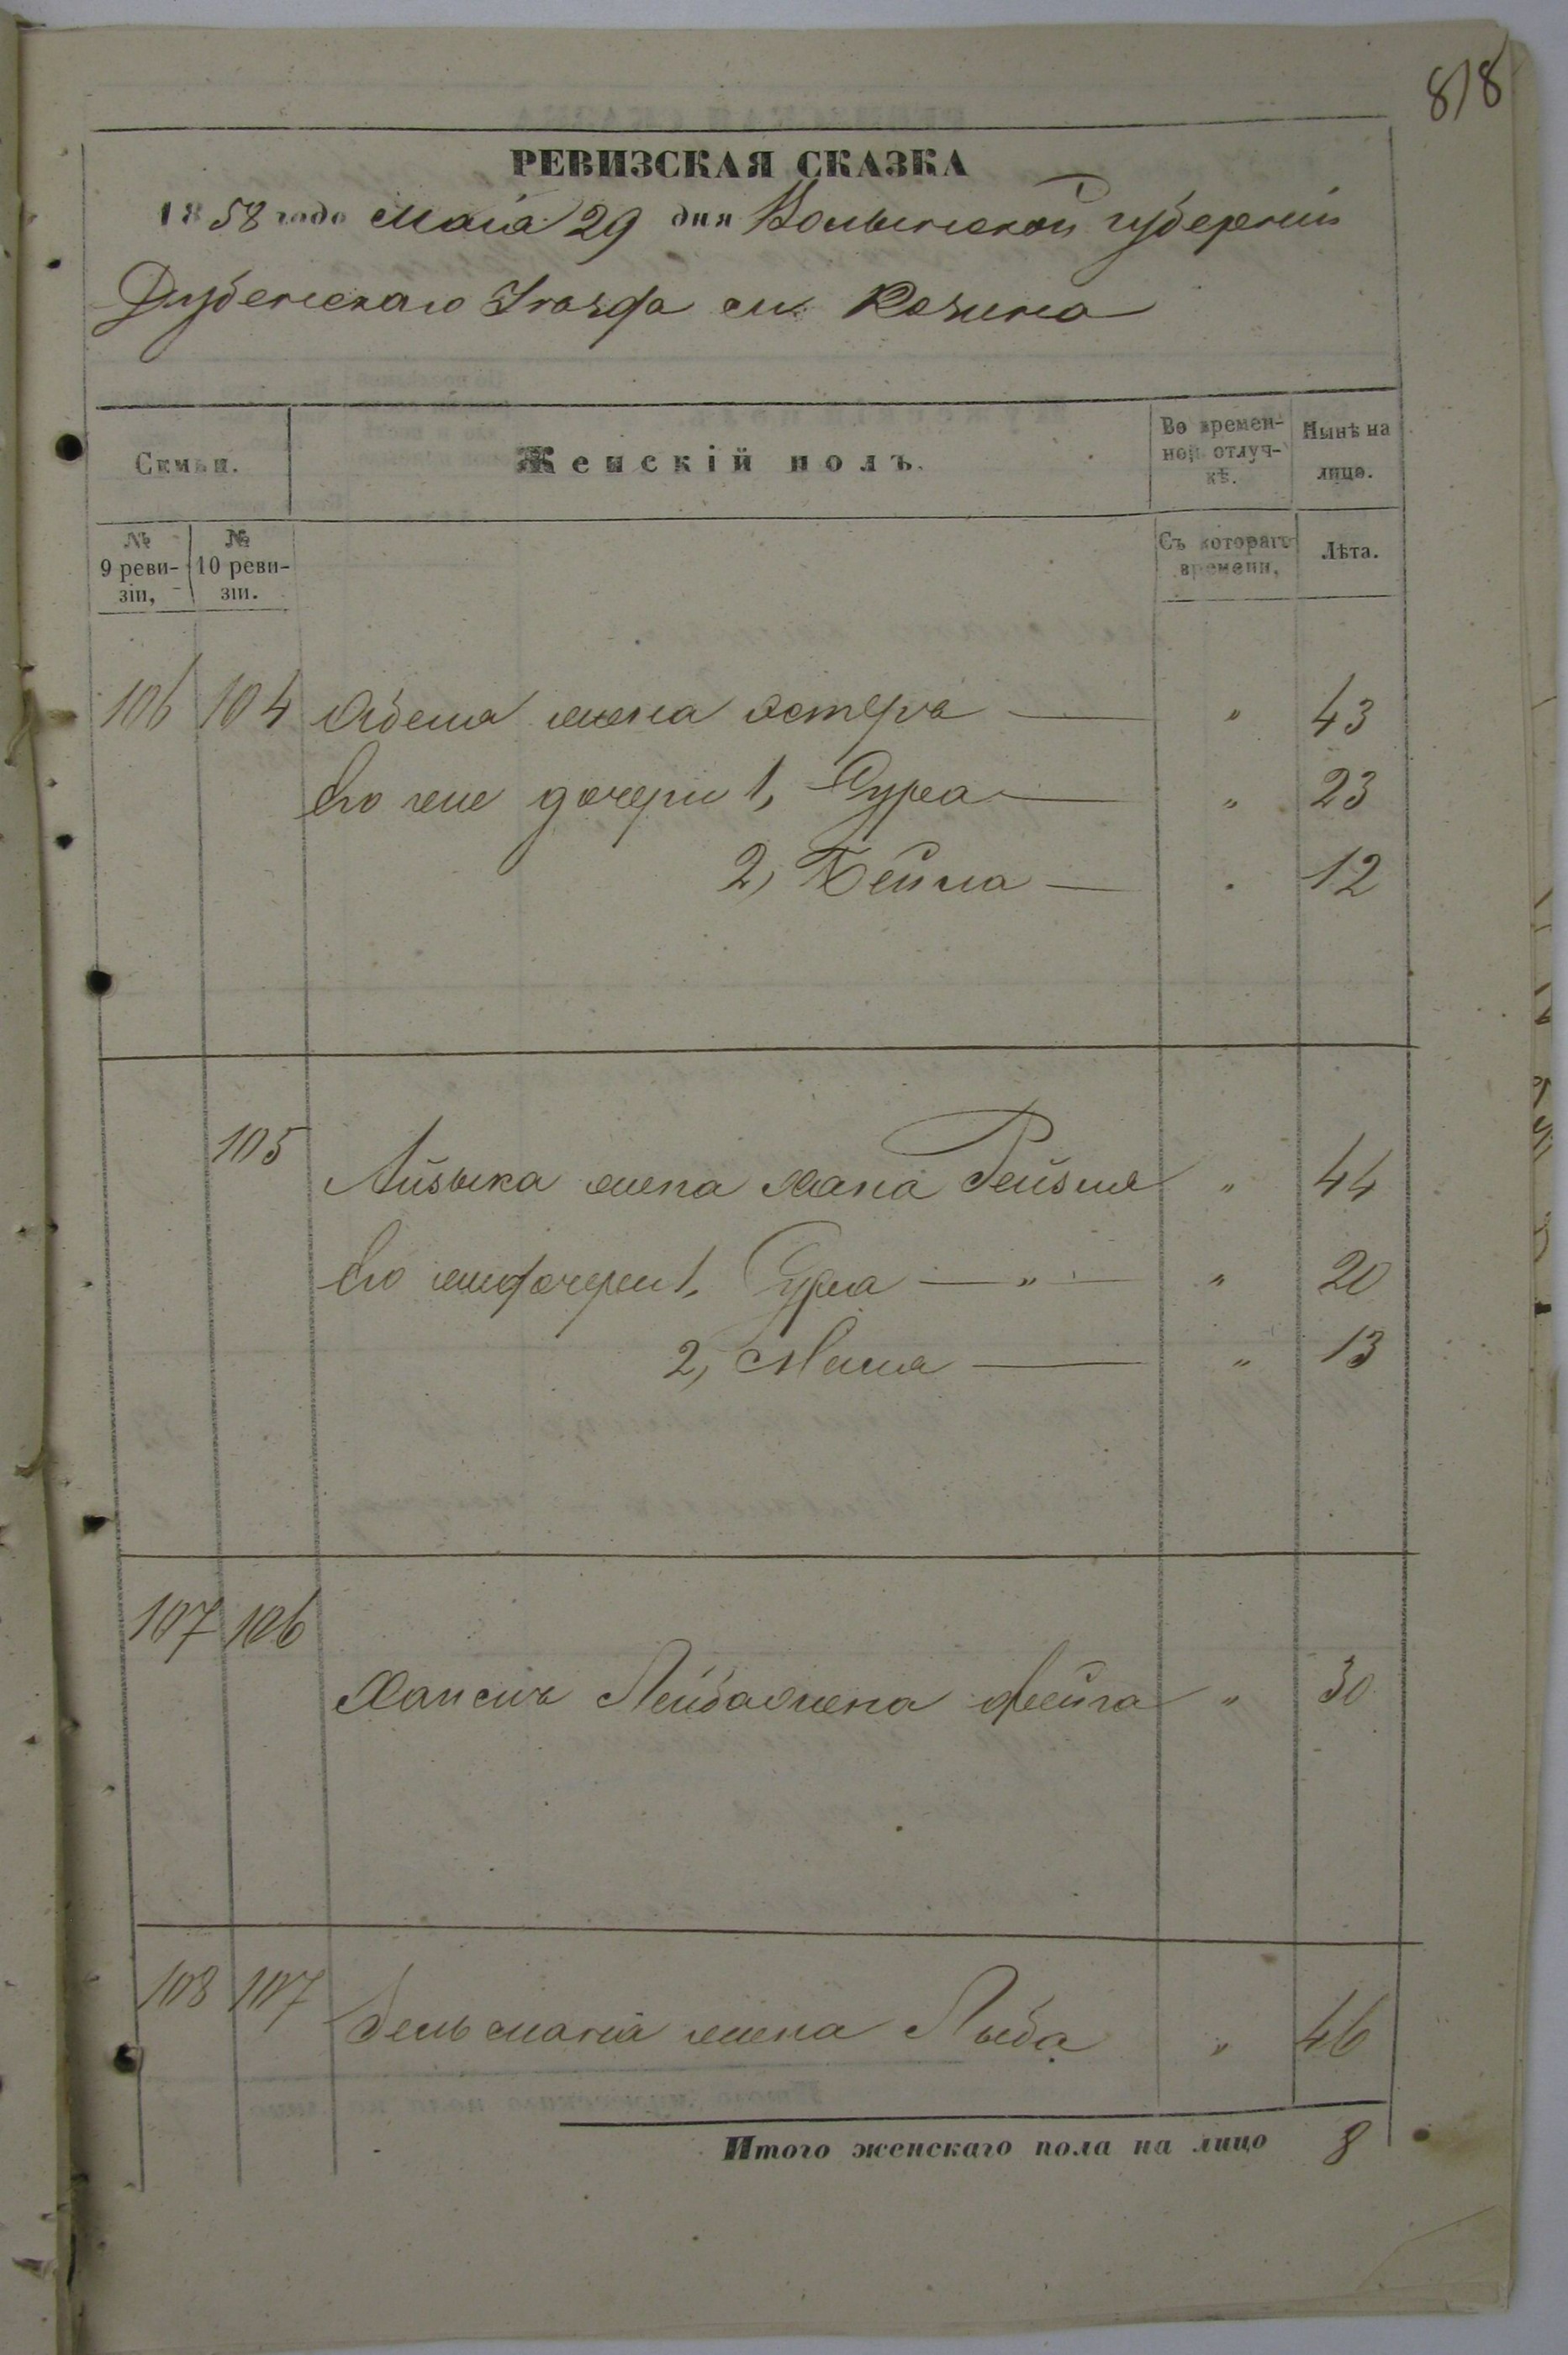 818
РЕВИЗСКАЯ СКАЗКА
1858 года Маія 29 дня Волынской губерніи
Дубенскаго Уѣзда м. Козина
Семьи. Женскій полъ. Во времен-ной отлуч-кѣ. Нынѣ на лицо.
№ 9 реви-зіи, № 10 реви-зіи. Съ котораго времени, Лѣта.
106 104 жена Естера — " 43
Его же дочери 1, Сура — " 23
2, Бейла — " 12
105 Айзыка жена Хана Рейзля " 44
Его же дочери 1, Сура — " — " 20
2, — " 13
107 106
Лейба жена Фейга " 30
108 107 жена Лыба " 46
Итого женскаго пола на лицо 8